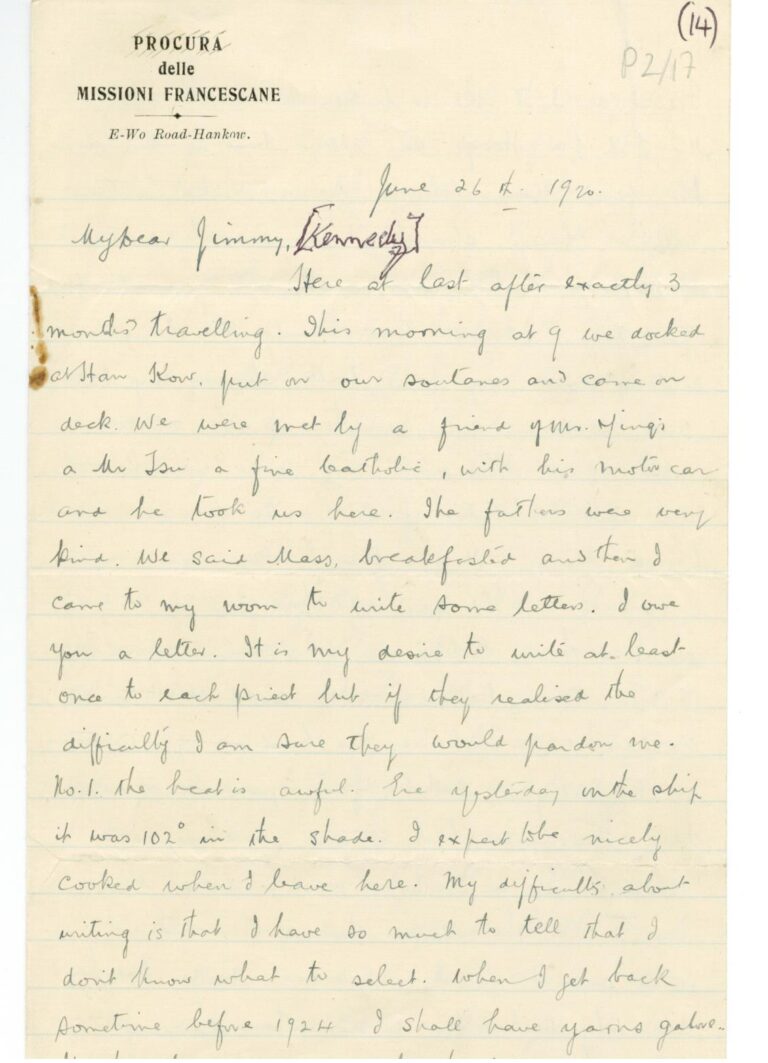 (14)
P2/17
PROCURA
delle
MISSIONI FRANCESCANE
E-Wo Road-Hankow.
June 26th. 1920.
My Dear Jimmy, [Kennedy]
Here at last after exactly 3
months' travelling. This morning at 9 we docked
at Han Kow, put on our soutanes and came on
deck. We were met by a friend of Mr. Ying's
a Mr Tsu a fine Catholic, with his motor car
and he took us here. The fathers were very
kind. We said Mass, breakfasted and then I
came to my room to write some letters. I owe
you a letter. It is my desire to write at least
once to each priest but if they realised the
difficulty I am sure they would pardon me.
No.1. the heat is awful. Ere yesterday on the ship
it was 102° in the shade. I expect to be nicely
cooked when I leave here. My difficulty about
writing is that I have so much to tell that I
don't know what to select. When I get back
sometime before 1924 I shall have yarns galore.